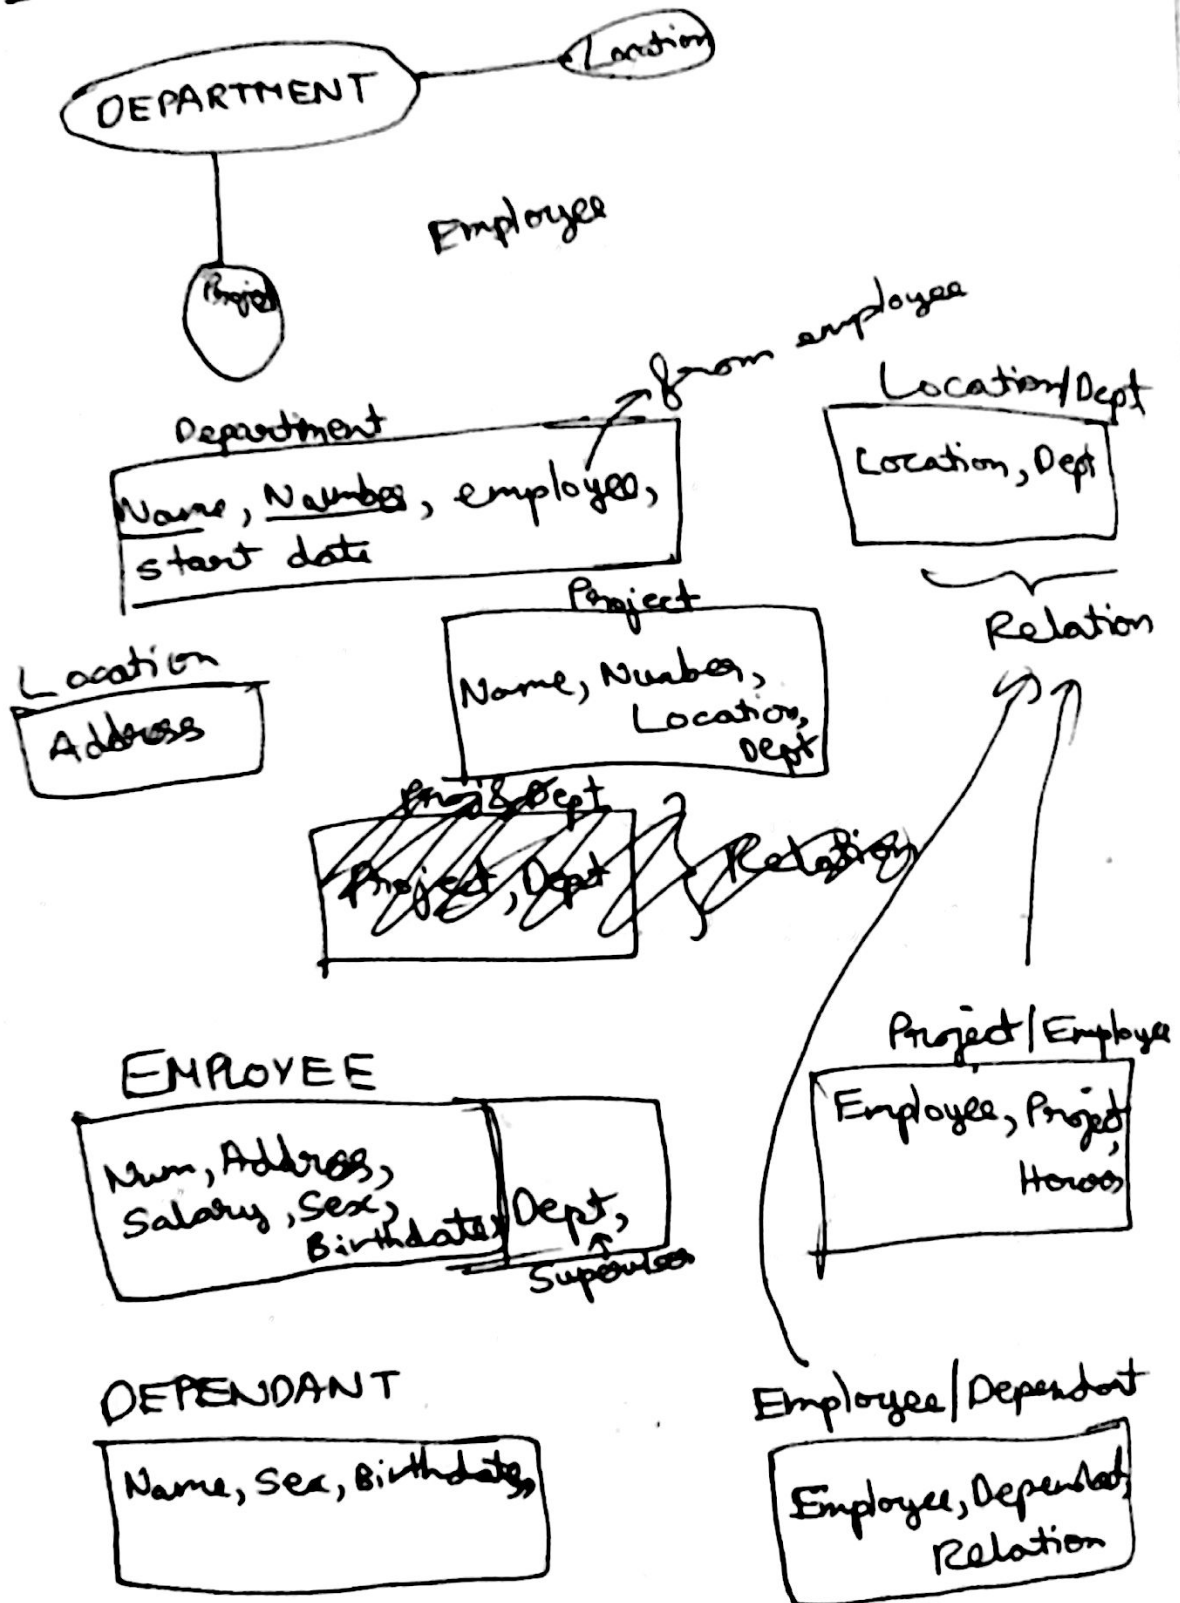 DEPARTMENT
Location
Project
Employee
from employee
Department
Name, Number, employee,
start date
Location/Dept
Location, Dept
Relation
Project
Name, Number,
Location,
Dept
Location
Address
Proj & Dept
Project, Dept
Relation
EMPLOYEE
Num, Address,
Salary, Sex,
Birthdate,
Dept,
Supervisor
Project/Employee
Employee, Project,
Hours
DEPENDANT
Name, Sex, Birthdate,
Employee/Dependant
Employee, Dependant,
Relation